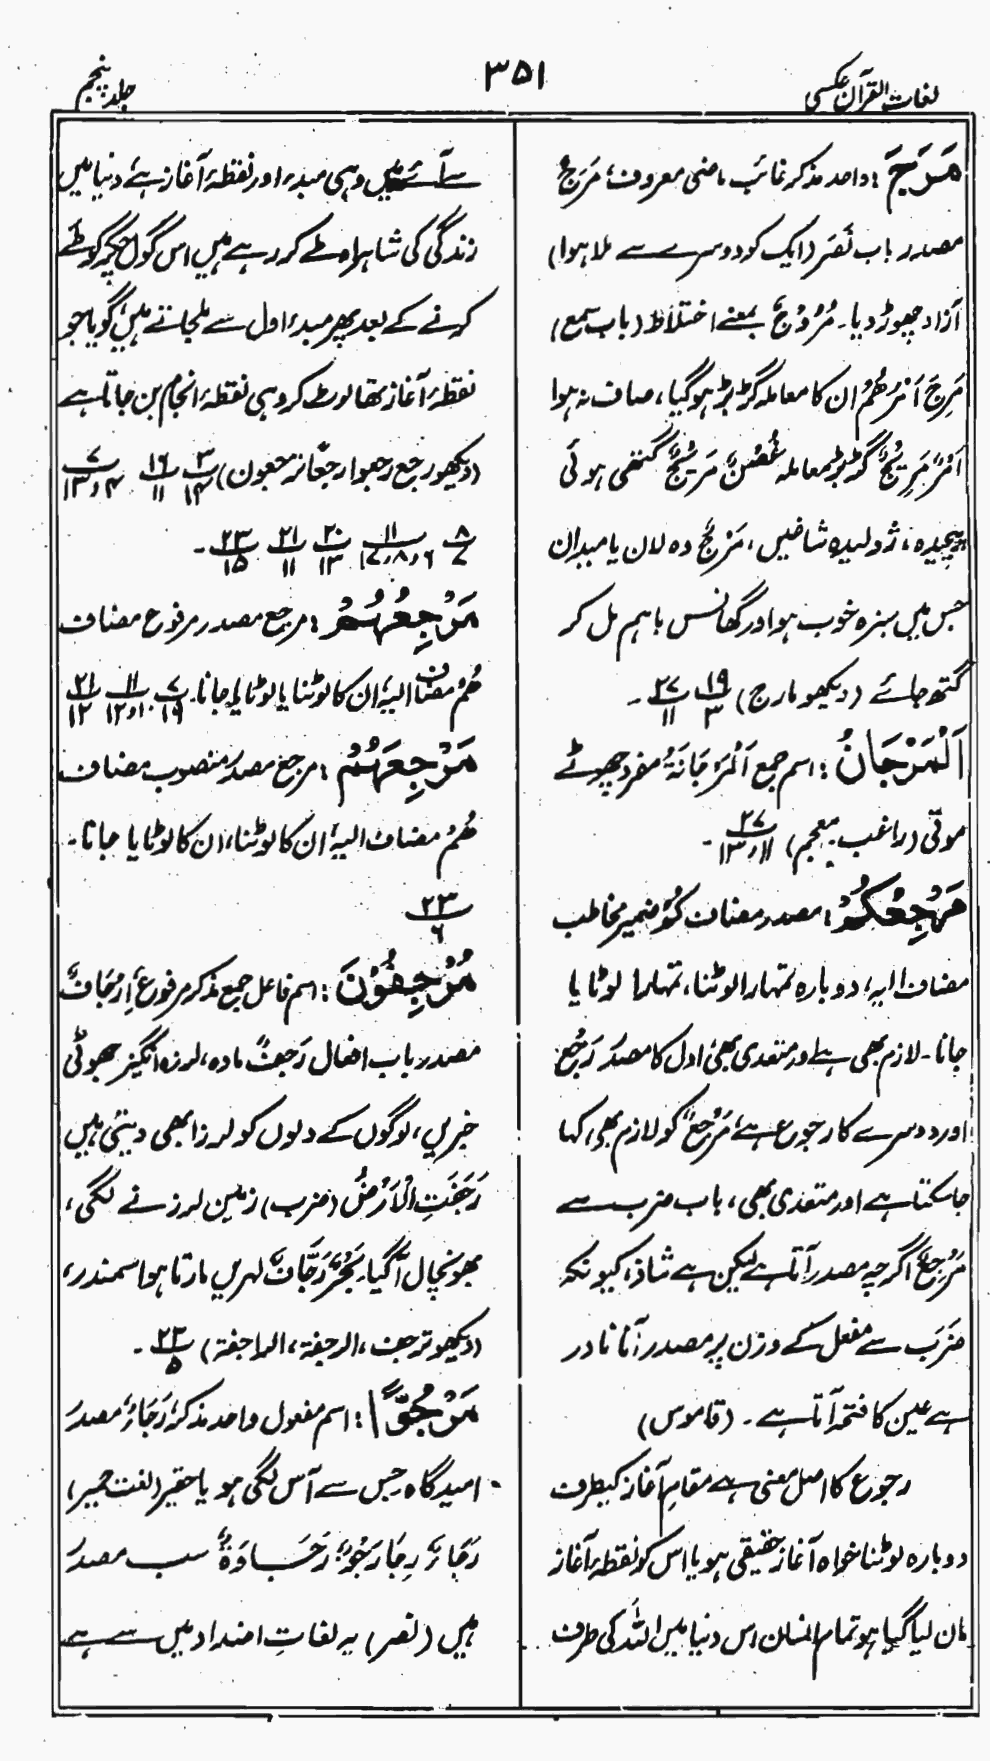 لغات القرآن عکسی
۳۵۱
جلد پنجم
مَرَجَ: واحد مذکر غائب ماضی معروف، مَرَجٌ
مصدر باب نَصَرَ (ایک کو دوسرے سے ملا ہوا)
آزاد چھوڑ دیا۔ مُرُوْجٌ بمعنے اختلاط (باب سمع)
مَرِجَ اَمْرُھُمْ ان کا معاملہ گڑبڑ ہوگیا، صاف نہ ہوا
اَمْرٌ مَرِیْجٌ گڑبڑ معاملہ غُصْنٌ مَرِیْجٌ گتھی ہوئی
پیچیدہ، ژولیدہ شاخیں، مَرْجٌ وہ لان یا میدان
جس میں سبزہ خوب ہو اور گھانس باہم مل کر
گتھ جائے (دیکھو مارج) ۱۹/۳ ۲۷/۱۱ ۔
اَلْمَرْجَانُ: اسم جمع اَلْمَرْجَانَۃُ مفرد چھوٹے
موتی (راغب، معجم) ۲۷/۱۱،۱۳ ۔
مَرْجِعُکُمْ: مصدر مضاف کُمْ ضمیر مخاطب
مضاف الیہ، دوبارہ تمہارا لوٹنا، تمہارا لوٹایا
جانا۔ لازم بھی ہے اور متعدی بھی، اول کا مصدر رَجْعٌ
اور دوسرے کا رجوع ہے، مَرْجِعٌ کو لازم بھی کہا
جاسکتا ہے اور متعدی بھی، باب ضرب سے
مَرْجِعٌ اگرچہ مصدر آتا ہے لیکن ہے شاذ، کیونکہ
ضَرَبَ سے مفعل کے وزن پر مصدر آنا نادر
ہے عین کا فتحہ آتا ہے۔ (قاموس)
رجوع کا اصل معنی ہے مقامِ آغاز کیطرف
دوبارہ لوٹنا خواہ آغاز حقیقی ہو یا اس کو نقطۂ آغاز
مان لیا گیا ہو تمام انسان اس دنیا میں اللہ کی طرف
سے آئے ہیں وہی مبدء اور نقطۂ آغاز ہے، دنیا میں
زندگی کی شاہراہ طے کر رہے ہیں اس گول چکر کو طے
کرنے کے بعد پھر مبدء اول سے ملجاتے ہیں، گویا جو
نقطۂ آغاز تھا لوٹ کر وہی نقطۂ انجام بن جاتا ہے
(دیکھو رجع رجعوا رجعًا ترجعون) ۳/۱۴ ۱۶/۱۱ ۷/۴،۱۳
۸/۷ ۱۱/۶،۸،۱۷ ۲۰/۱۳ ۲۱/۱۱ ۲۳/۱۵ ۔
مَرْجِعُہُمْ: مرجع مصدر مرفوع مضاف
ھُمْ مضاف الیہ، ان کا لوٹنا یا لوٹایا جانا۔ ۷/۱۹ ۱۱/۱۰،۱۲ ۲۱/۱۲
مَرْجِعَہُمْ: مرجع مصدر منصوب مضاف
ھُمْ مضاف الیہ، ان کا لوٹنا، ان کا لوٹایا جانا۔
۲۳/۶
مُرْجِفُوْنَ: اسم فاعل جمع مذکر مرفوع، اِرْجَافٌ
مصدر باب افعال رَجْفٌ مادہ، لرزہ انگیز جھوٹی
خبریں، لوگوں کے دلوں کو لرزا بھی دیتی ہیں
رَجَفَتِ الْاَرْضُ (ضرب) زمین لرزنے لگی،
بھونچال آگیا۔ بَحْرٌ رَجَّافٌ لہریں مارتا ہوا سمندر،
(دیکھو ترجف، الرجفۃ، الراجفۃ) ۲۲/۵ ۔
مَرْجُوًّا: اسم مفعول واحد مذکر، رَجَاءٌ مصدر
امیدگاہ جس سے آس لگی ہو یا حقیر (لغت حمیر)
رَجَاءٌ رِجَاءٌ رَجْوٌ رَجَاوَۃٌ سب مصدر
ہیں (نصر) یہ لغاتِ اضداد میں سے ہے